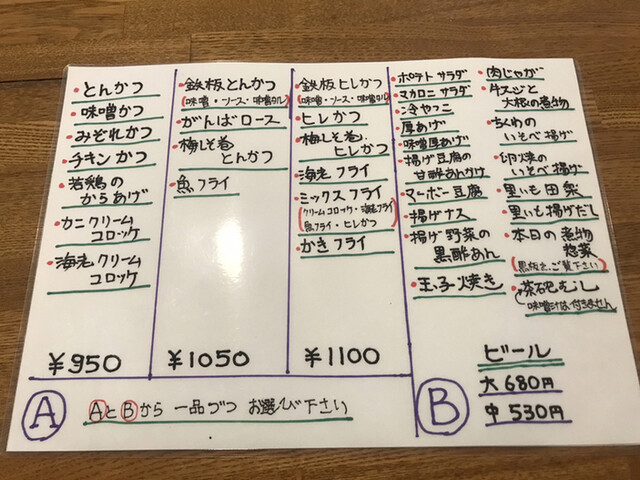 とんかつ
味噌かつ
みぞれかつ
チキンかつ
若鶏の
からあげ
カニクリーム
コロッケ
海老クリーム
コロッケ
¥950
鉄板とんかつ
(味噌・ソース・味噌タル)
がんばロース
梅しそ巻
とんかつ
魚フライ
¥1050
鉄板ヒレかつ
(味噌・ソース・味噌タル)
ヒレかつ
梅しそ巻.
ヒレかつ
海老フライ
ミックスフライ
(クリームコロッケ・海老フライ
魚フライ・ヒレかつ)
かきフライ
¥1100
Ⓐ
ⒶとⒷから 一品づつ お選び下さい
ポテトサラダ
マカロニサラダ
冷やっこ
厚あげ
味噌厚あげ
揚げ豆腐の
甘酢あんかけ
マーボー豆腐
揚げナス
揚げ野菜の
黒酢あん
玉子焼き
肉じゃが
牛スジと
大根の煮物
ちくわの
いそべ揚げ
卵焼の
いそべ揚げ
里いも田楽
里いも揚げだし
本日の煮物
惣菜
(黒板をご覧下さい)
茶碗むし
味噌汁は付きません
Ⓑ
ビール
大 680円
中 530円